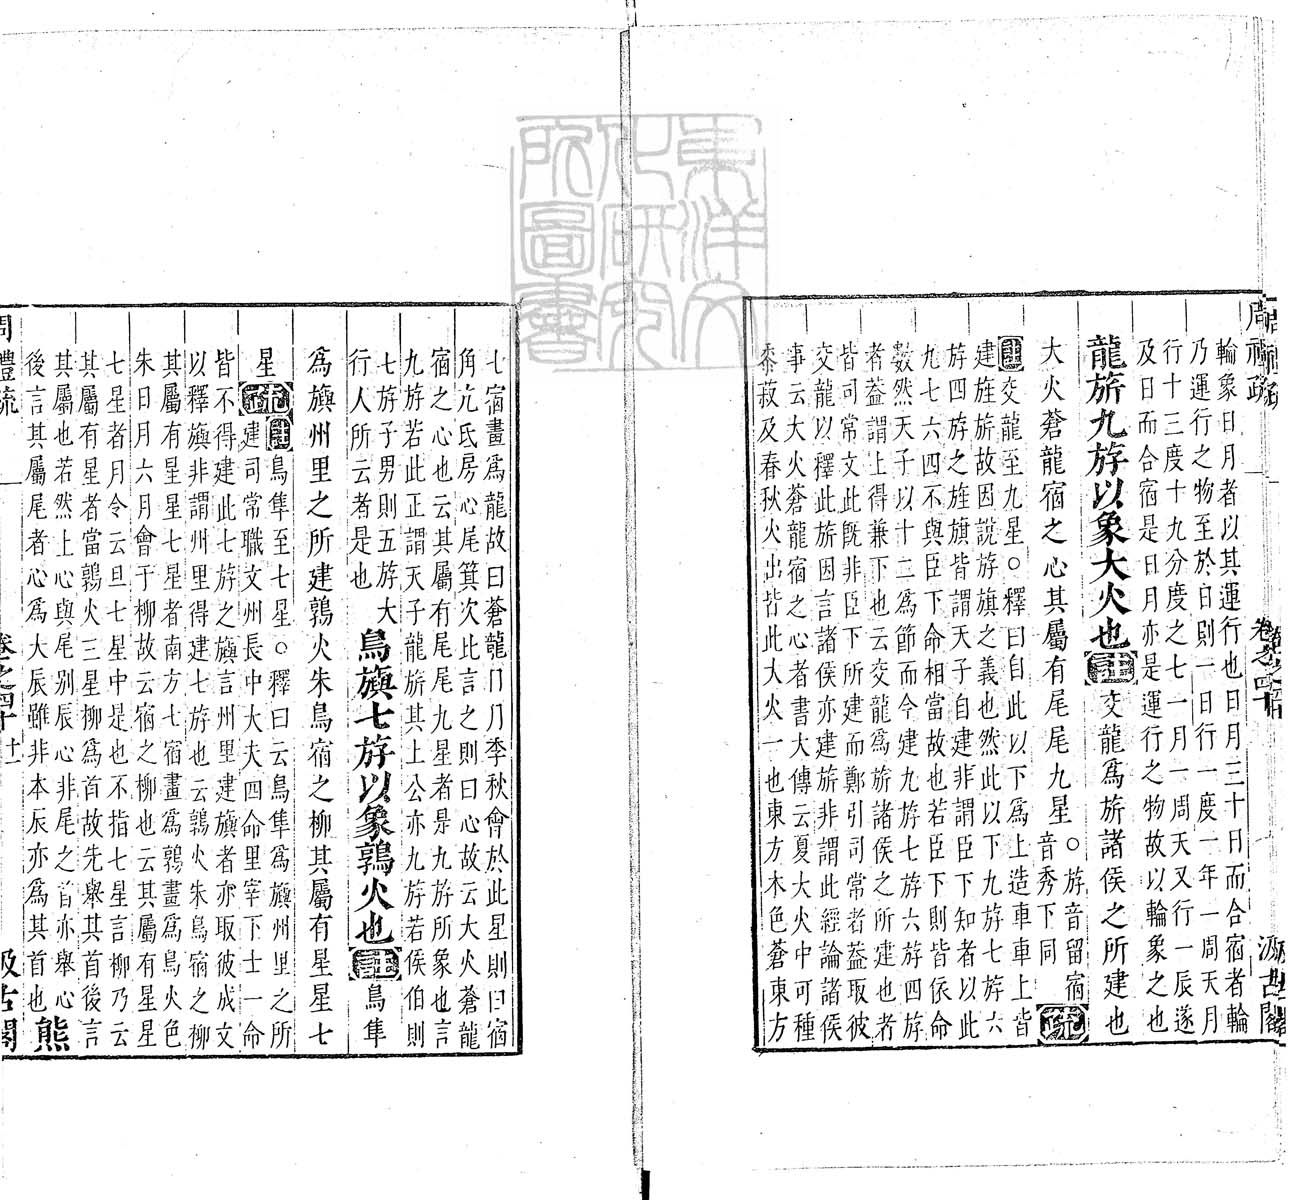 周禮疏
卷之四十
汲古閣
輪象日月者以其運行也日月三十日而合宿者輪
乃運行之物至於日則一日行一度一年一周天月
行十三度十九分度之七一月一周天又行一辰遂
及日而合宿是日月亦是運行之物故以輪象之也
龍旂九斿以象大火也註交龍爲旂諸侯之所建也
大火蒼龍宿之心其屬有尾尾九星○斿音留宿音秀下同疏
註交龍至九星○釋曰自此以下爲上造車車上皆
建旌旂故因說旂旗之義也然此以下九斿七斿六
斿四斿之旌旗皆謂天子自建非謂臣下知者以此
九七六四不與臣下命相當故也若臣下則皆依命
數然天子以十二爲節而今建九斿七斿六斿四斿
者蓋謂上得兼下也云交龍爲旂諸侯之所建也者
皆司常文此旣非臣下所建而鄭引司常者蓋取彼
交龍以釋此旂因言諸侯亦建旂非謂此經論諸侯
事云大火蒼龍宿之心者書大傳云夏大火中可種
黍菽及春秋火出皆此大火一也東方木色蒼東方
七宿畫爲龍故曰蒼龍日月季秋會於此星則曰宿
角亢氐房心尾箕次比言之則曰心故云大火蒼龍
宿之心也云其屬有尾尾九星者是九斿所象也言
九斿若此正謂天子龍旂其上公亦九斿若侯伯則
七斿子男則五斿大
行人所云者是也
鳥旟七斿以象鶉火也註鳥隼
爲旟州里之所建鶉火朱鳥宿之柳其屬有星星七
星疏註鳥隼至七星○釋曰云鳥隼爲旟州里之所
建司常職文州長中大夫四命里宰下士一命
皆不得建此七斿之旟言州里建旟者亦取彼成文
以釋旟非謂州里得建七斿也云鶉火朱鳥宿之柳
其屬有星星七星者南方七宿畫爲鶉畫爲鳥火色
朱日月六月會于柳故云宿之柳也云其屬有星星
七星者月令云旦七星中是也不指七星言柳乃云
其屬有星者當鶉火三星柳爲首故先舉其首後言
其屬也若然上心與尾别辰心非尾之首亦舉心
後言其屬尾者心爲大辰雖非本辰亦爲其首也
熊
周禮疏
卷之四十
十一
汲古閣
東洋文化研究所圖書